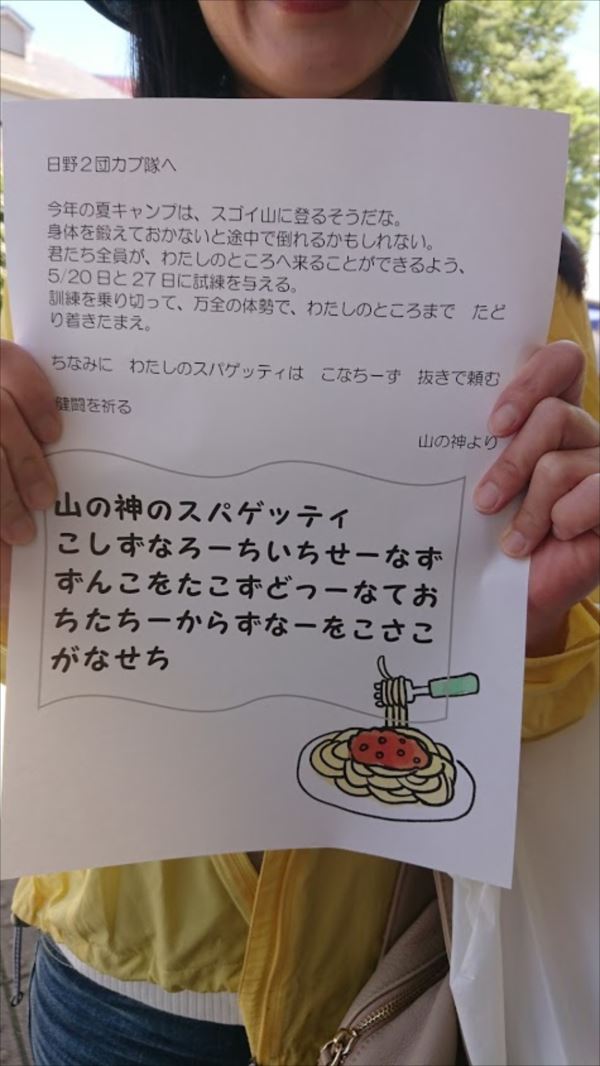 日野２団カブ隊へ
今年の夏キャンプは、スゴイ山に登るそうだな。
身体を鍛えておかないと途中で倒れるかもしれない。
君たち全員が、わたしのところへ来ることができるよう、
5/20 日と 27 日に試練を与える。
訓練を乗り切って、万全の体勢で、わたしのところまで　たど
り着きたまえ。
ちなみに　わたしのスパゲッティは　こなちーず　抜きで頼む
健闘を祈る
山の神より
山の神のスパゲッティ
こしずなろーちいちせーなず
ずんこをたこずどつーなてお
ちたちーからずなーをこさこ
がなせち